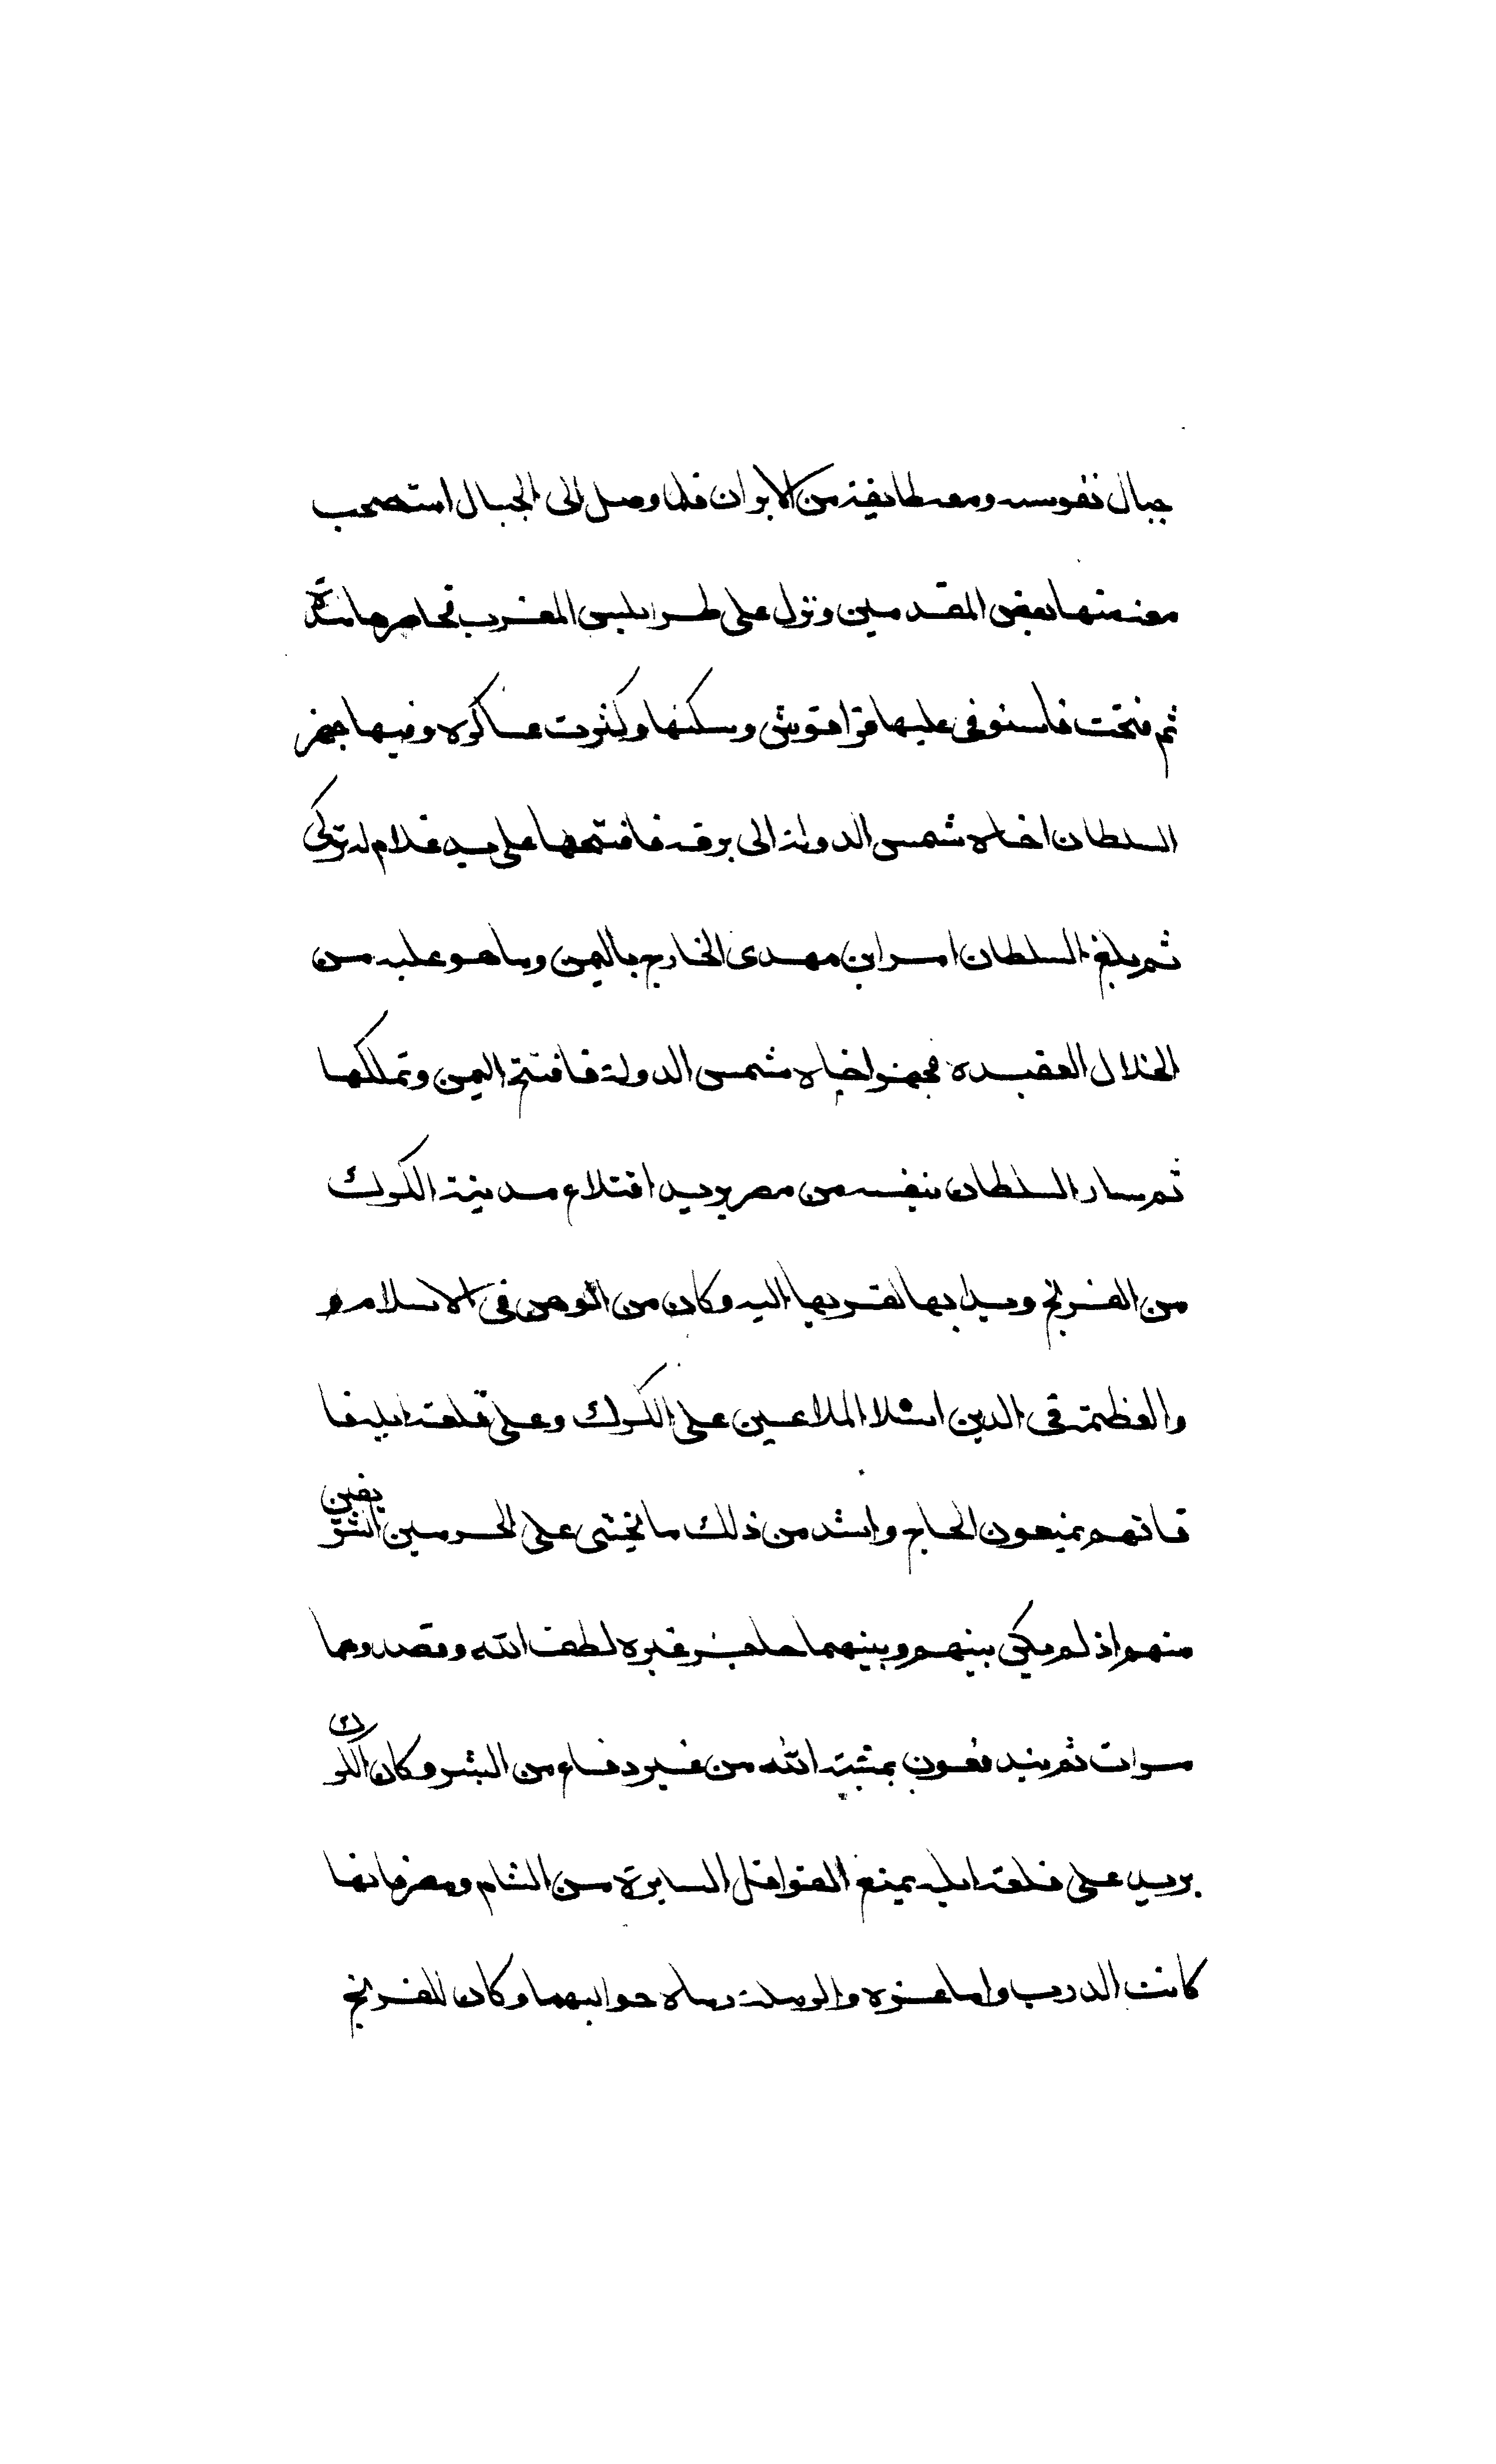 جبال نفوسه ومعه طايفة من الابران فلما وصل الى الجبال استصحب
معه منها بعض المقدمين ونزل على طرابلس المغرب فحاصرها مدة
ثم فتحت فاستوفى عليها قراقوش وسكنها وكثرت عساكره وفيها جهز
السلطان اخاه شمس الدولة الى برقه فافتتحها على يد غلام له تركى
ثم بلغ السلطان امر ابن مهدى الخارج باليمن وما هو عليه من
الخلال العقيده فجهز اخاه شمس الدولة فافتتح اليمن وتملكها
ثم سار السلطان بنفسه من مصر يريد اقتلاع مدينة الكرك
من الفرنج وبدا بها لقربها اليه وكان من الوهن فى الاسلام و
والعظمة فى الدين استلا الملاعين على الكرك وعلى قلعة ايله فا
فانهم يمنعون الحاج واشد من ذلك ما يخشى على الحرمين الشريفين
منهم اذ لم يكن بينهم وبينهما حاجز غيره لطف الله وقصدوهما
مرات ثم يندفعون بمشية الله من غير دفاع من البشر وكان الكرك
يريد على قلعة ايله يمنع القوافل السايرة من الشام ومصر فانها
كانت الدرب واما غزه والرملة وما حواليهما وكان للفرنج